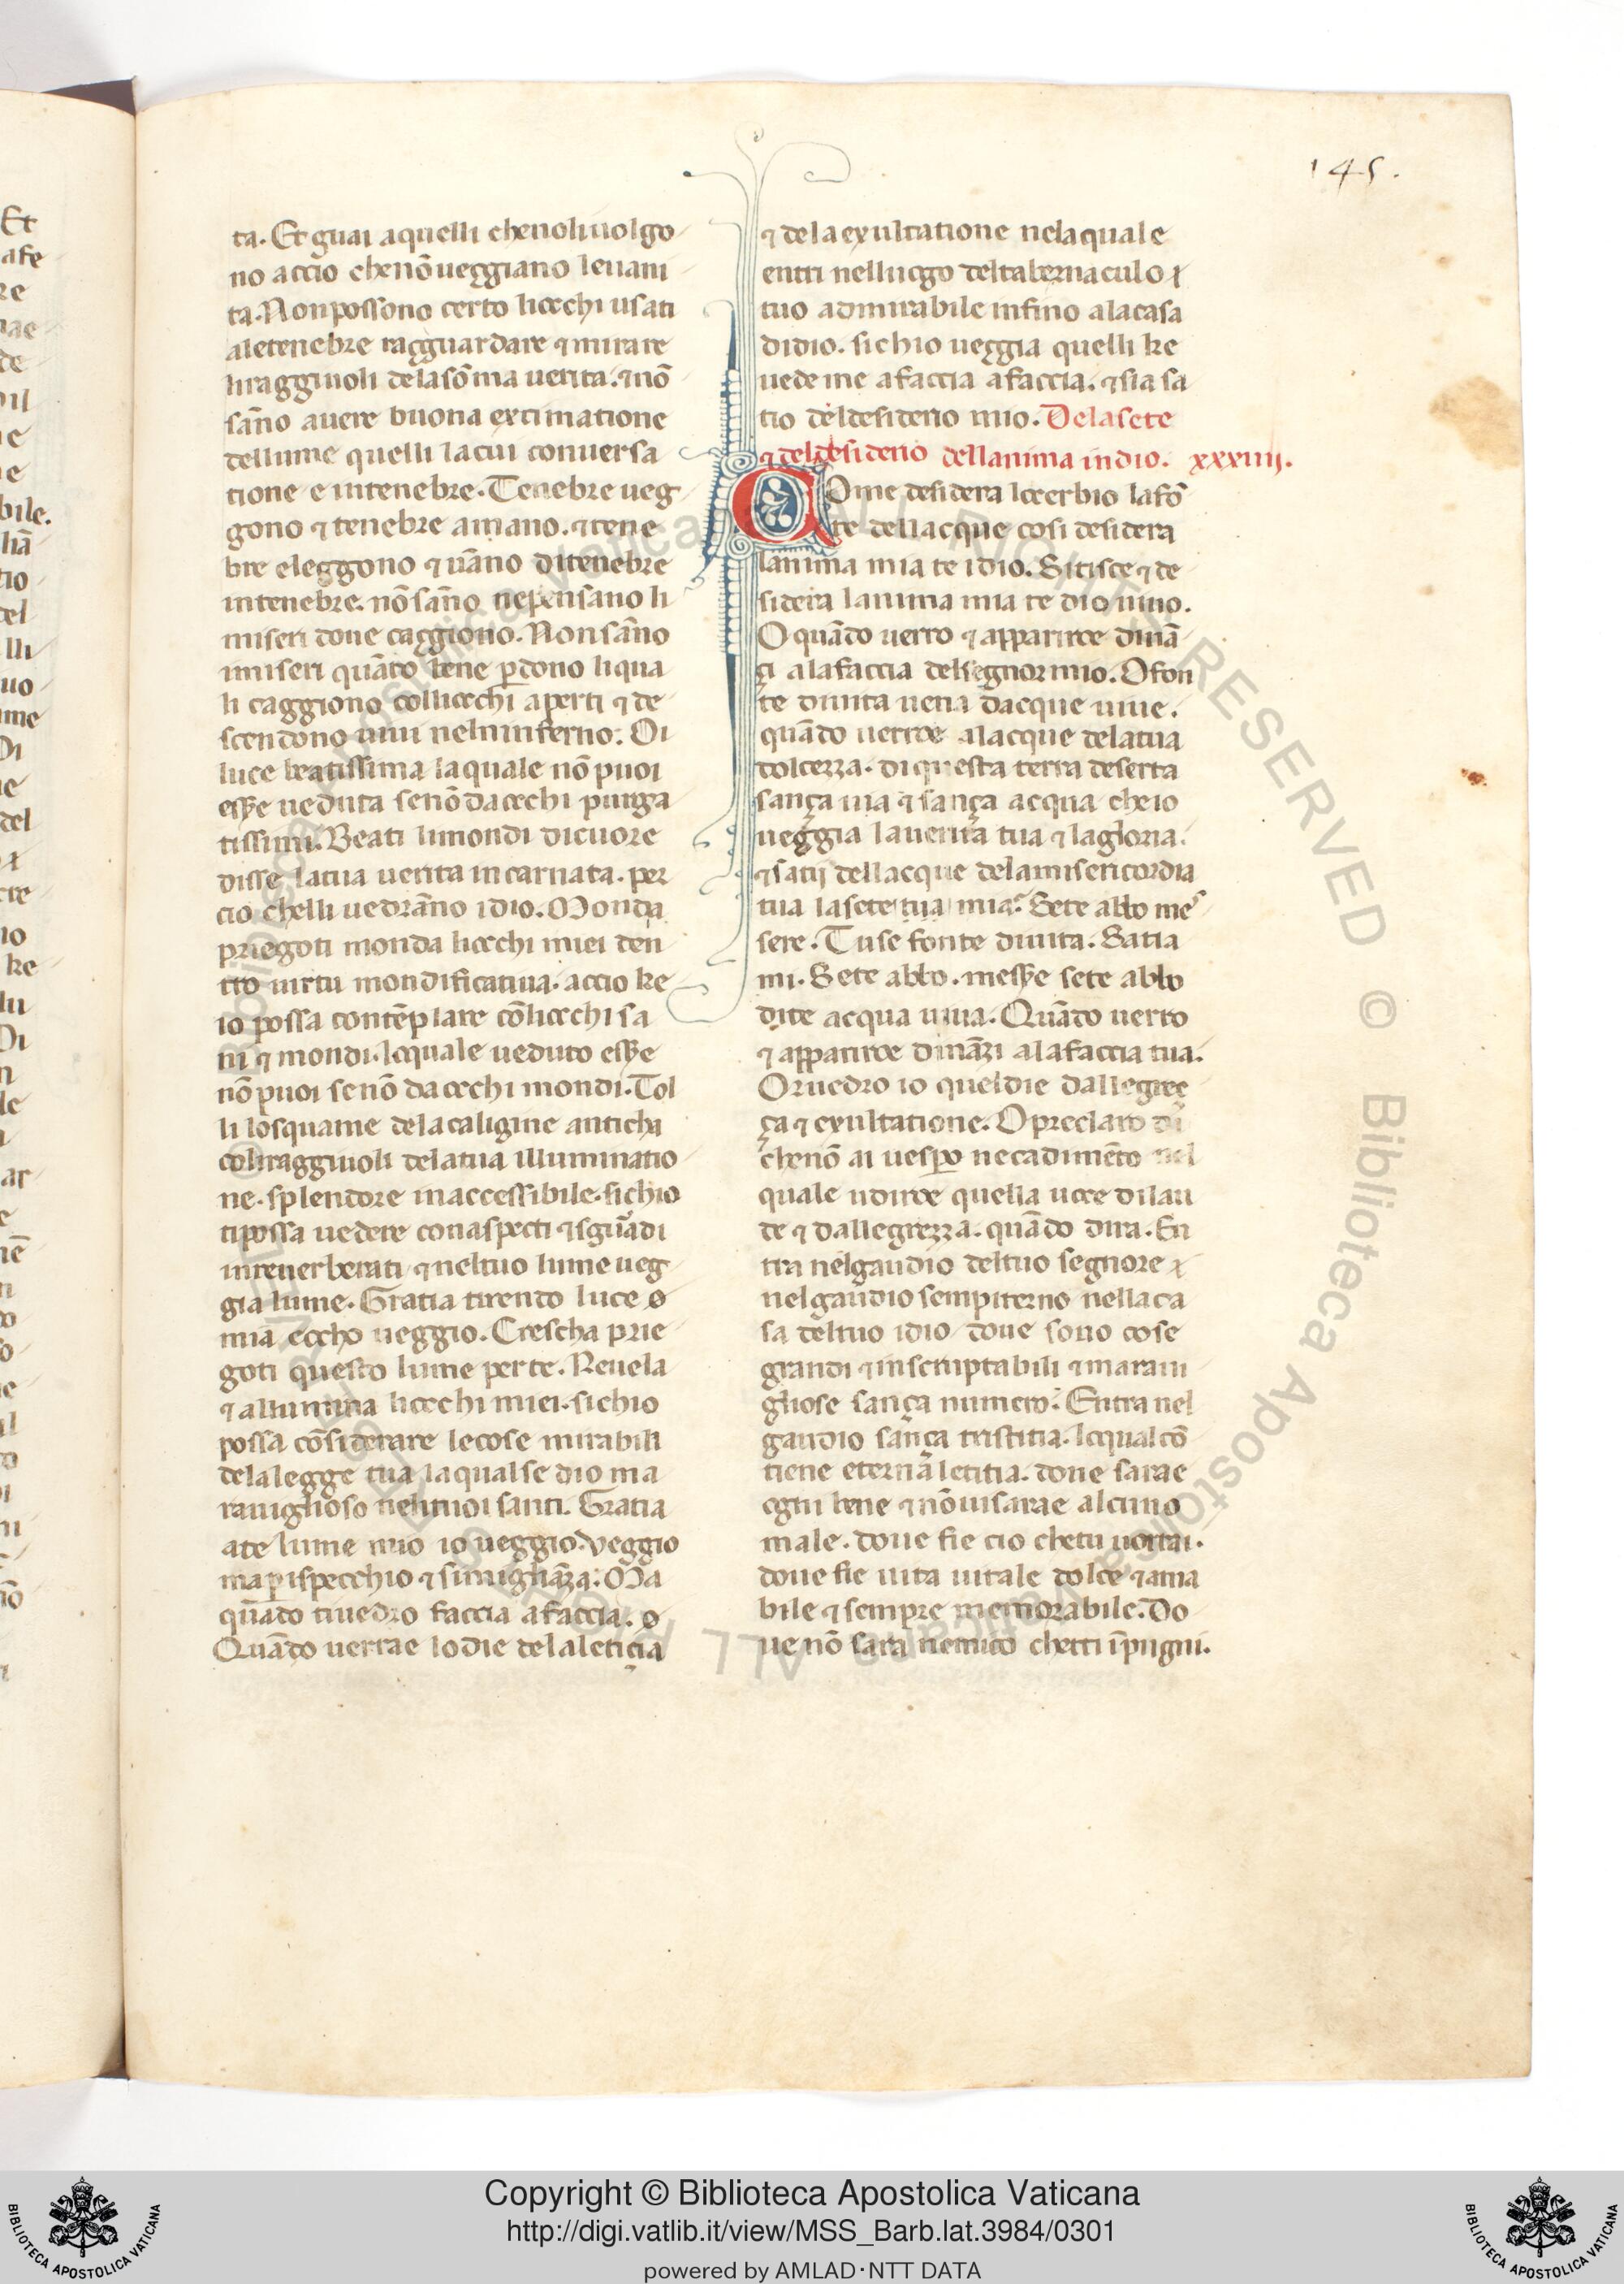 145.
ta. Et guai aquelli chenoliuolgo
no accio chenōueggiano leuani
ta. Non possono certo liocchi usati
aletenebre racguardare ⁊ mirare
liraggiuoli delasōma uerita. ⁊ nō
sāno auere buona extimatione
dellume quelli lacui conuersa
tione e intenebre. Tenebre ueg
gono ⁊ tenebre amano. ⁊ tene
bre eleggono ⁊ uāno ditenebre
intenebre. nō sāno nepensano li
miseri doue caggiono. Non sāno
imiseri quāto bene ꝑdono liqua
li caggiono colliocchi aperti ⁊ de
scendono uiui nelninferno. Oi
luce beatissima laquale nō puoi
essere ueduta senō daocchi purga
tissimi. Beati limondi dicuore
disse latua uerita incarnata. per
cio chelli uedrāno idio. Monda
priegoti monda liocchi miei den
tro uirtu mondificatiua. accio ke
io possa contēplare cōliocchi sa
ni ⁊ mondi. loquale ueduto essere
nō puoi se nō da occhi mondi. Tol
li losquame delacaligine anticha
coliraggiuoli delatua illuminatio
ne. splendore inaccessibile. sichio
tipossa uedere conaspecti ⁊ sguādi
inreuerberati ⁊ neltuo lume ueg
gia lume. Gratia tirendo luce o
mia eccho ueggio. Crescha prie
goti questo lume per te. Reuela
⁊ allumina liocchi miei. sichio
possa cōsiderare lecose mirabili
delalegge tua laqualse dio ma
rauiglioso nelituoi santi. Gratia
ate lume mio io ueggio. Veggio
ma ꝑ ispecchio ⁊ simigliāza. Ma
quādo tiuedro faccia afaccia. o
Quādo uerrae lodie delaleticia
⁊ delaexultatione nelaquale
entri nelluogo deltabernaculo ⁊
tuo admirabile infino alacasa
didio. sichio ueggia quelli ke
uede me afaccia afaccia. ⁊ sia sa
tio deldesiderio mio. Delasete
⁊ deldesiderio dellanima indio. xxxiiij.
Come desidera locerbio lafō
te dellacque cosi desidera
lanima mia te idio. Sitisce ⁊ de
sidera lanima mia te dio uiuo.
O quādo uerro ⁊ appariroe dinā
çi alafaccia delsegnormio. O fon
te diuita uena dacque uiue.
quādo uerroe alacque delatua
dolcezza. diquesta terra deserta
sança uia ⁊ sança acqua cheio
ueggia lauerita tua ⁊ lagloria.
⁊ satij dellacque delamisericordia
tua lasete tua mia. Sete abbo me
sere. Tuse fonte diuita. Satia
mi. Sete abbo. messere sete abbo
dite acqua uiua. Quādo uerro
⁊ appariroe dināzi alafaccia tua.
Oruedro io queldie dallegrec
ça ⁊ exultatione. O preclaro di
chenō ai uespo necadimēto nel
quale udiroe quella uoce dilau
de ⁊ dallegrezza. quādo dira. En
tra nelgaudio deltuo segnore ⁊
nelgaudio sempiterno nellaca
sa deltuo idio doue sono cose
grandi ⁊ inscruptabili ⁊ maraui
gliose sança numero. Entra nel
gaudio sança tristitia. loqualcō
tiene eternāletitia. doue sarae
ogni bene ⁊ nōuisarae alcuno
male. doue fie cio chetu uorrai.
doue fie uita uitale dolce ⁊ ama
bile ⁊ sempre memorabile. Do
ue nō sara nemico chetti īpugni.
Copyright © Biblioteca Apostolica Vaticana
http://digi.vatlib.it/view/MSS_Barb.lat.3984/0301
powered by AMLAD·NTT DATA